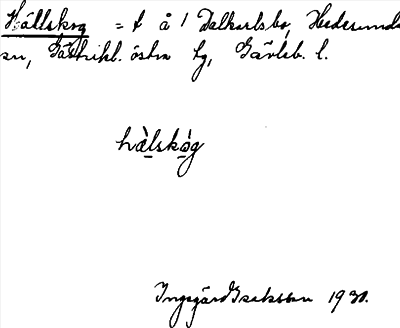 Hällskog = t å 1 Dalkarlsbo, Hedesunda
sn, Gästrikl. östra tg, Gävleb. l.
hàlskòg
Ingegärd Isaksson 1930.